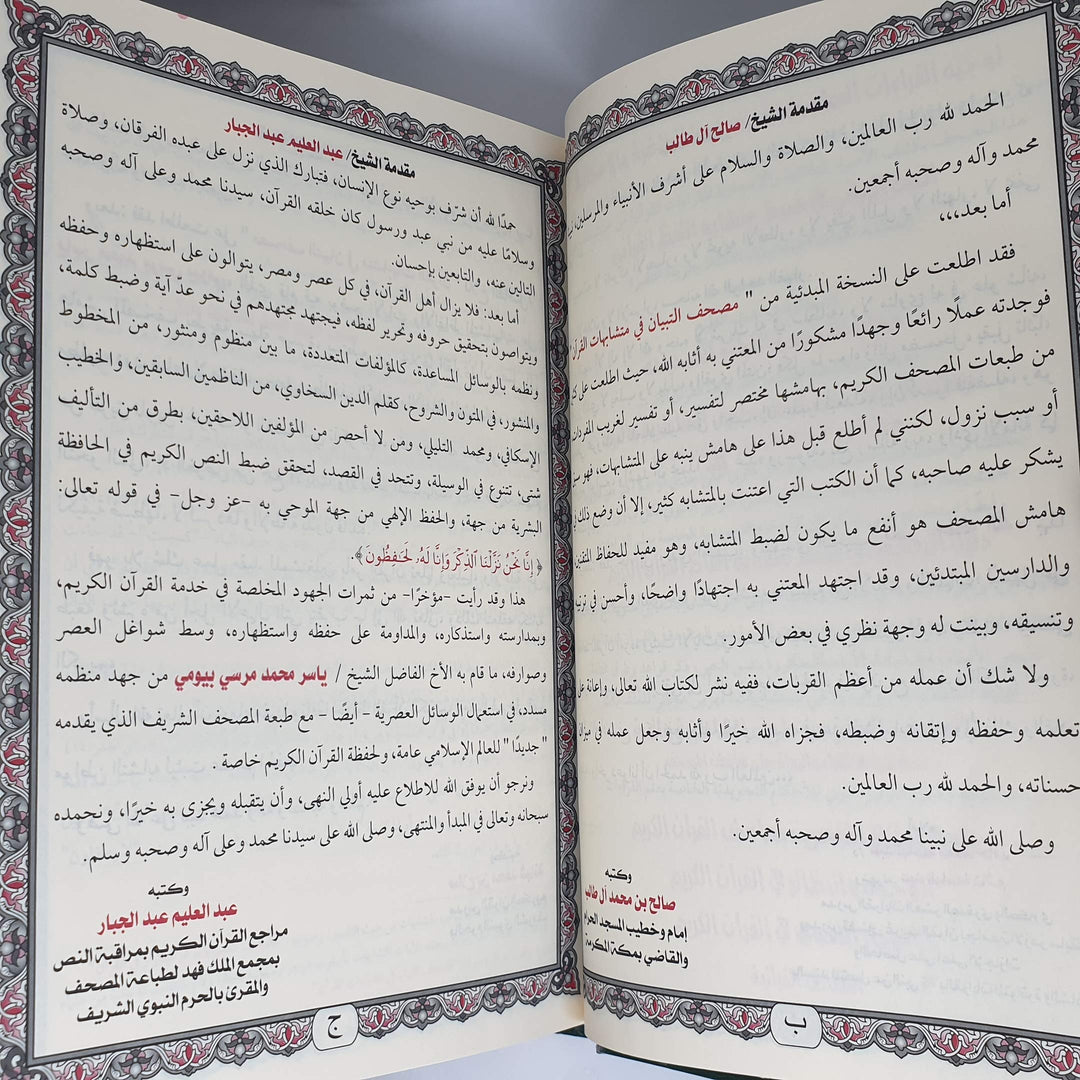 مقدمة الشيخ/ صالح آل طالب
الحمد لله رب العالمين، والصلاة والسلام على أشرف الأنبياء والمرسلين،
محمد وآله وصحبه أجمعين.
أما بعد،،،
فقد اطلعت على النسخة المبدئية من " مصحف التبيان في متشابهات القرآن
فوجدته عملًا رائعًا وجهدًا مشكورًا من المعتني به أثابه الله، حيث اطلعت على
من طبعات المصحف الكريم، بهامشها مختصر لتفسير، أو تفسير لغريب المفردات
أو سبب نزول، لكنني لم أطلع قبل هذا على هامش ينبه على المتشابهات، فهو
يشكر عليه صاحبه، كما أن الكتب التي اعتنت بالمتشابه كثير، إلا أن وضع ذلك
هامش المصحف هو أنفع ما يكون لضبط المتشابه، وهو مفيد للحفاظ
والدارسين المبتدئين، وقد اجتهد المعتني به اجتهادًا واضحًا، وأحسن في
وتنسيقه، وبينت له وجهة نظري في بعض الأمور.
ولا شك أن عمله من أعظم القربات، ففيه نشر لكتاب الله تعالى، وإعانة على
تعلمه وحفظه وإتقانه وضبطه، فجزاه الله خيرًا وأثابه وجعل عمله في
حسناته، والحمد لله رب العالمين.
وصلى الله على نبينا محمد وآله وصحبه أجمعين.
وكتبه
صالح بن محمد آل طالب
إمام وخطيب المسجد الحرام
والقاضي بمكة المكرمة
ب
مقدمة الشيخ/ عبد العليم عبد الجبار
حمدًا لله أن شرّف بوحيه نوع الإنسان، فتبارك الذي نزل على عبده الفرقان، وصلاة
وسلامًا عليه من نبي عبد ورسول كان خلقه القرآن، سيدنا محمد وعلى آله وصحبه
التالين عنه، والتابعين بإحسان.
أما بعد: فلا يزال أهل القرآن، في كل عصر ومصر، يتوالون على استظهاره وحفظه
ويتواصون بتحقيق حروفه وتحرير لفظه، فيجتهد مجتهدهم في نحو عدّ آية وضبط كلمة،
ونظمه بالوسائل المساعدة، كالمؤلفات المتعددة، ما بين منظوم ومنثور، من المخطوط
والمنشور، في المتون والشروح، كقلم الدين السخاوي، من الناظمين السابقين، والخطيب
الإسكافي، ومحمد التليلي، ومن لا أحصر من المؤلفين اللاحقين، بطرق من التأليف
شتى، تتنوع في الوسيلة، وتتحد في القصد، لتحقق ضبط النص الكريم في الحافظة
البشرية من جهة، والحفظ الإلهي من جهة الموحي به -عز وجل- في قوله تعالى:
﴿ إِنَّا نَحْنُ نَزَّلْنَا ٱلذِّكْرَ وَإِنَّا لَهُۥ لَحَـٰفِظُونَ ﴾.
هذا وقد رأيت -مؤخرًا- من ثمرات الجهود المخلصة في خدمة القرآن الكريم،
وبمدارسته واستذكاره، والمداومة على حفظه واستظهاره، وسط شواغل العصر
وصوارفه، ما قام به الأخ الفاضل الشيخ / ياسر محمد مرسي بيومي من جهد منظمه
مسدد، في استعمال الوسائل العصرية - أيضًا - مع طبعة المصحف الشريف الذي يقدمه
"جديدًا" للعالم الإسلامي عامة، ولحفظة القرآن الكريم خاصة .
ونرجو أن يوفق الله للاطلاع عليه أولي النهى، وأن يتقبله ويجزى به خيرًا، ونحمده
سبحانه وتعالى في المبدأ والمنتهى، وصلى الله على سيدنا محمد وعلى آله وصحبه وسلم.
وكتبه
عبد العليم عبد الجبار
مراجع القرآن الكريم بمراقبة النص
بمجمع الملك فهد لطباعة المصحف
والمقرئ بالحرم النبوي الشريف
ج